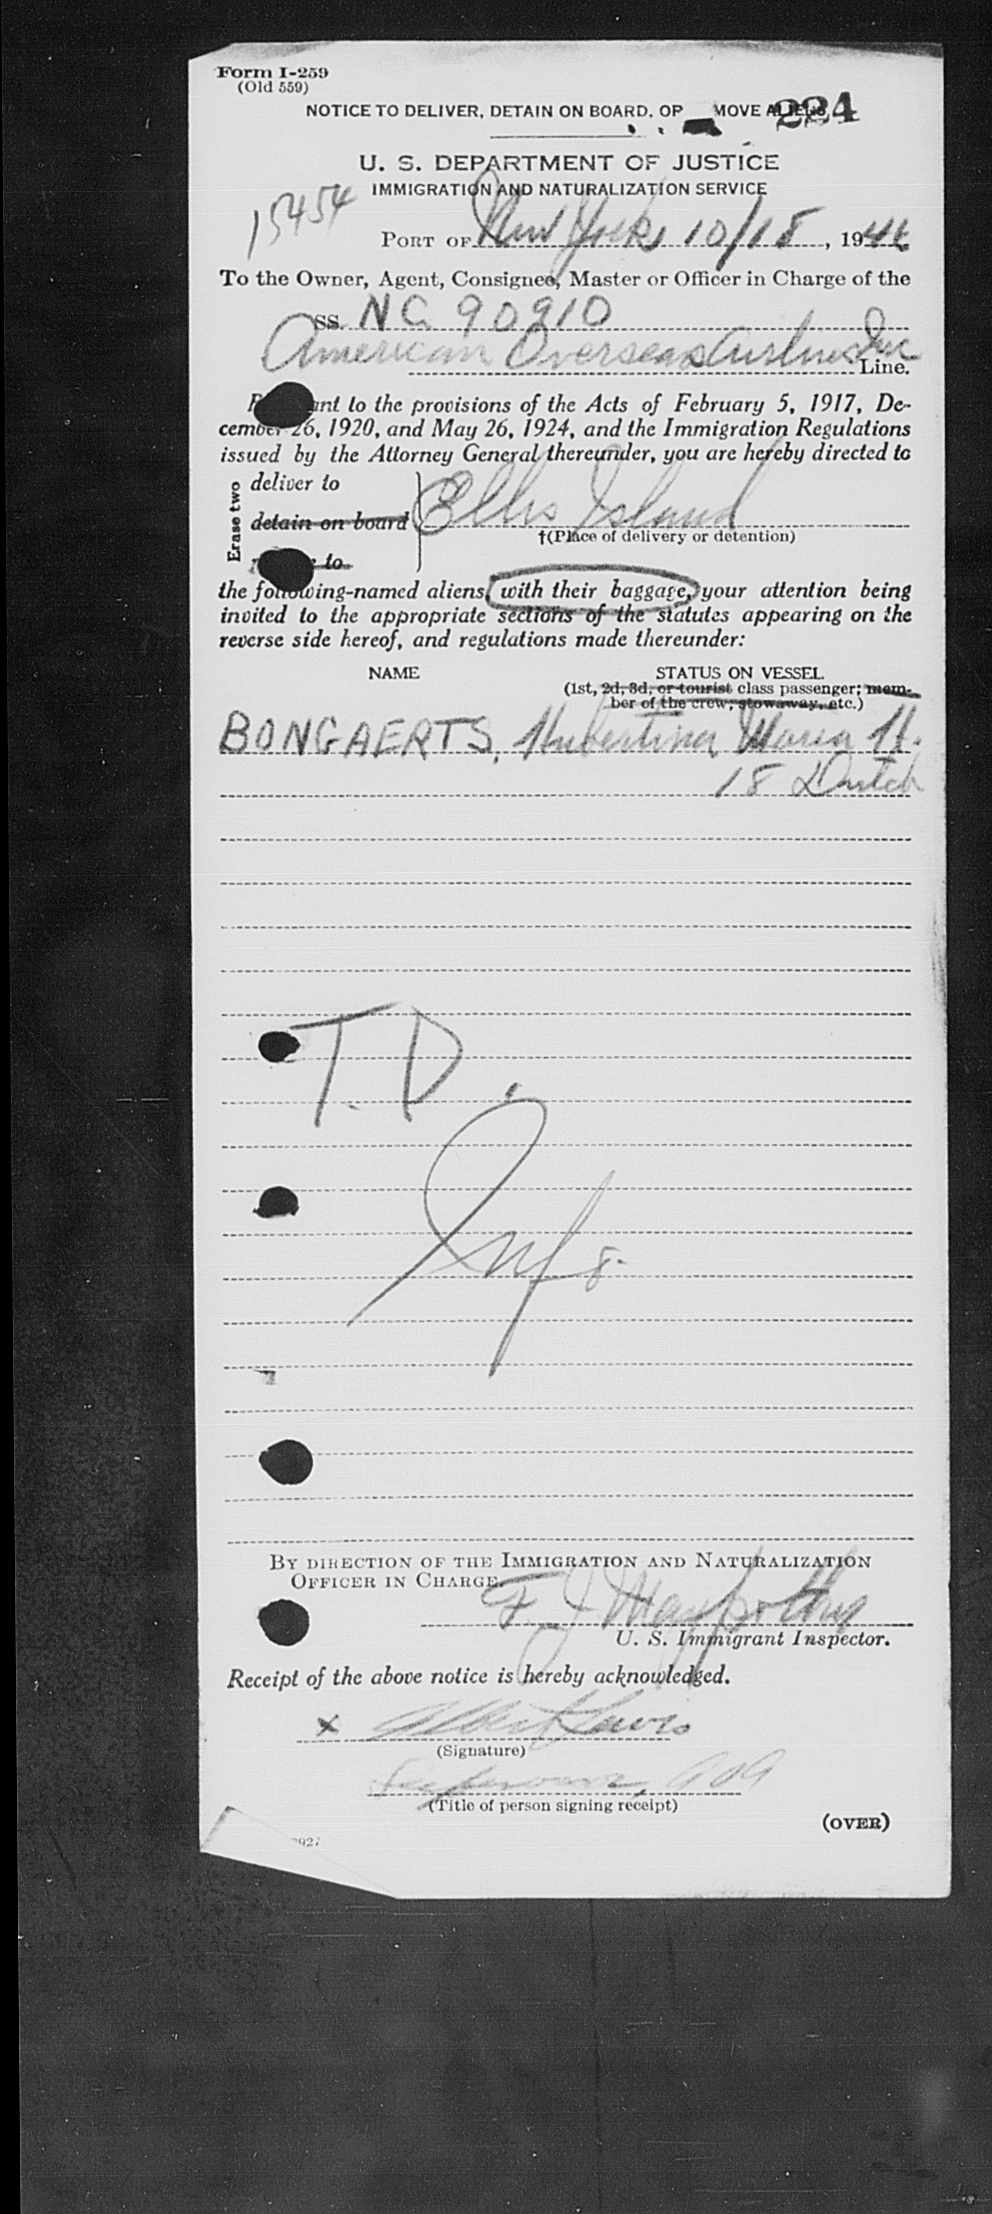 Form I-259
(Old 559)
NOTICE TO DELIVER, DETAIN ON BOARD, OR MOVE ALIENS
224
U. S. DEPARTMENT OF JUSTICE
IMMIGRATION AND NATURALIZATION SERVICE
15454
PORT OF New York, 10/18, 1946
To the Owner, Agent, Consignee, Master or Officer in Charge of the
SS. NC 90910
American Overseas Airlines Inc
Line.
ant to the provisions of the Acts of February 5, 1917, De-
cember 26, 1920, and May 26, 1924, and the Immigration Regulations
issued by the Attorney General thereunder, you are hereby directed to
Erase two
deliver to
detain on board Ellis Island
†(Place of delivery or detention)
to
the following-named aliens, with their baggage, your attention being
invited to the appropriate sections of the statutes appearing on the
reverse side hereof, and regulations made thereunder:
NAME STATUS ON VESSEL
(1st, 2d, 3d, or tourist class passenger; mem-
ber of the crew; stowaway, etc.)
BONGAERTS, Hubertina Maria H.
18 Dutch
T. D.
Inf 8-
BY DIRECTION OF THE IMMIGRATION AND NATURALIZATION
OFFICER IN CHARGE.
F. J.
U. S. Immigrant Inspector.
Receipt of the above notice is hereby acknowledged.
x Albert Lewis
(Signature)
(Title of person signing receipt)
(OVER)